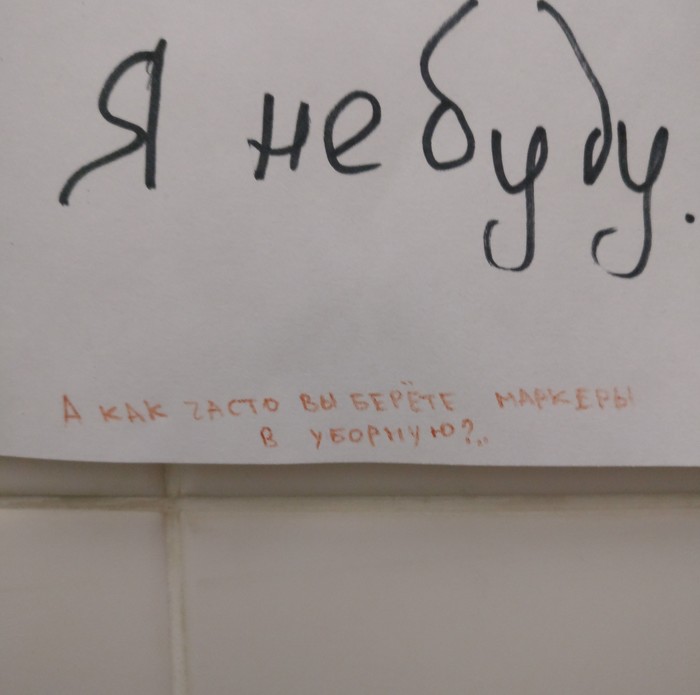 Я не буду.
А КАК ЧАСТО ВЫ БЕРЁТЕ МАРКЕРЫ
В УБОРНУЮ?..